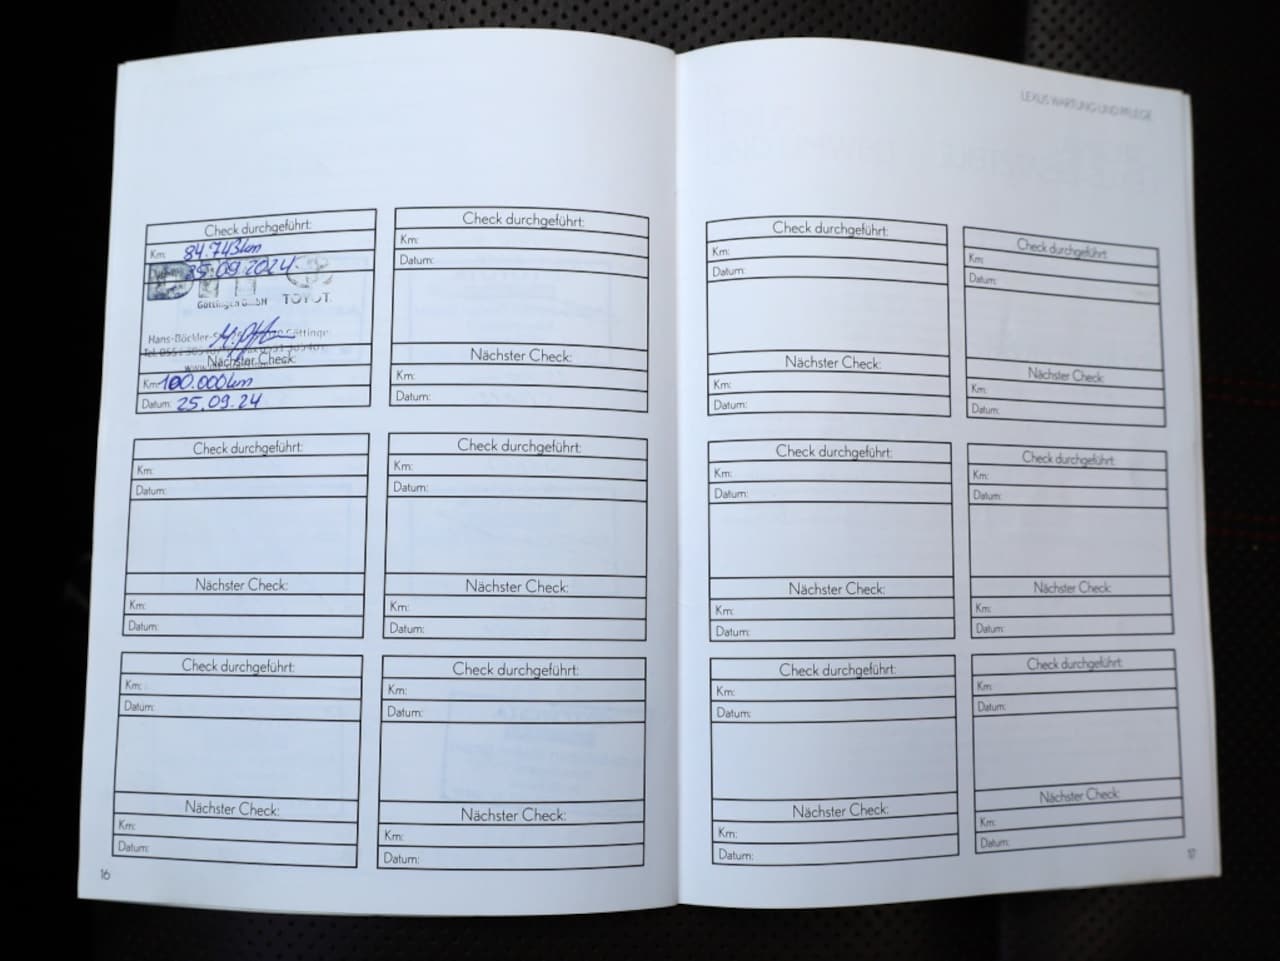 LEXUS WARTUNG UND PFLEGE
Check durchgeführt:
Km: 84.743km
25.09.2024
Göttingen GmbH TOYOT
Hans-Böckler-S Göttinge
Nächster Check:
Km: 100.000km
Datum: 25.09.24
Check durchgeführt:
Km:
Datum:
Nächster Check:
Km:
Datum:
Check durchgeführt:
Km:
Datum:
Nächster Check:
Km:
Datum:
Check durchgeführt:
Km:
Datum:
Nächster Check:
Km:
Datum:
Check durchgeführt:
Km:
Datum:
Nächster Check:
Km:
Datum:
Check durchgeführt:
Km:
Datum:
Nächster Check:
Km:
Datum:
16
Check durchgeführt:
Km:
Datum:
Nächster Check:
Km:
Datum:
Check durchgeführt:
Km:
Datum:
Nächster Check:
Km:
Datum:
Check durchgeführt:
Km:
Datum:
Nächster Check:
Km:
Datum:
Check durchgeführt:
Km:
Datum:
Nächster Check:
Km:
Datum:
Check durchgeführt:
Km:
Datum:
Nächster Check:
Km:
Datum:
Check durchgeführt:
Km:
Datum:
Nächster Check:
Km:
Datum:
17